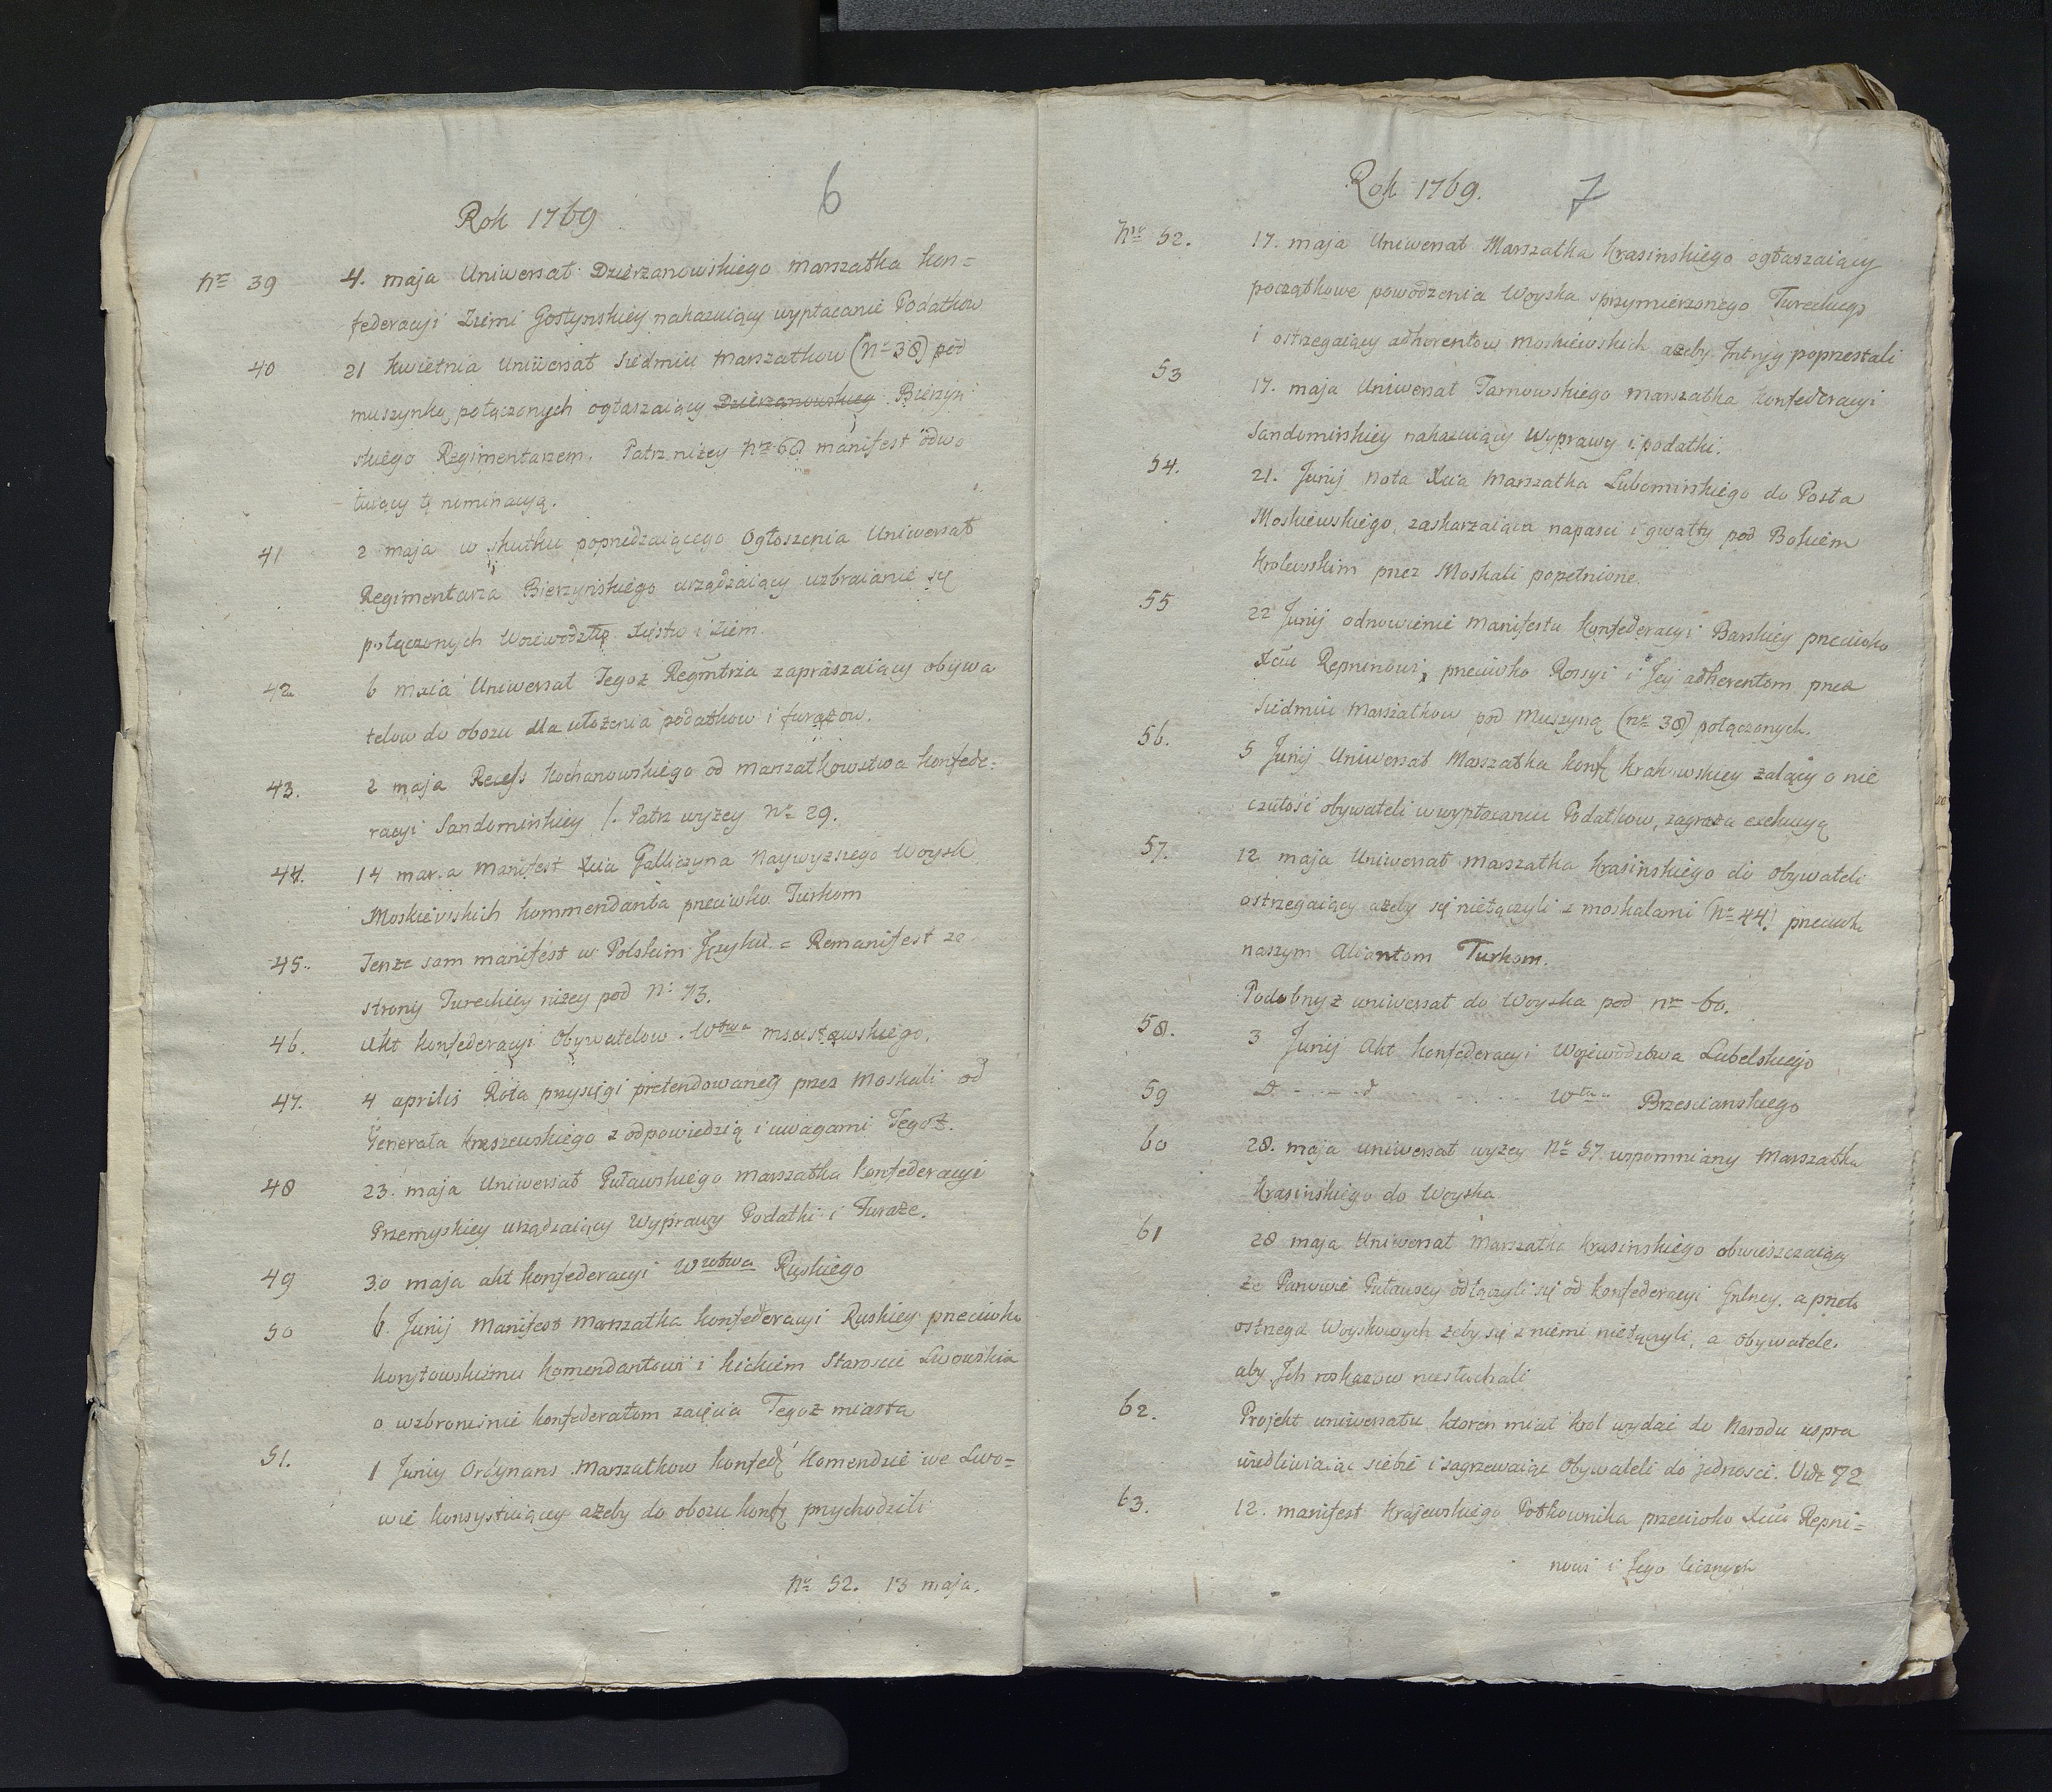 6
Rok 1769
Nr 39 4. maja Uniwersał Dzierzanowskiego marszałka kon=
federacyi Ziemi Gostynskiey nakazuiący wypłacanie Podatkow
40 21 kwietnia Uniwersał Siedmiu Marszałkow (Nr 38) pod
muszynką połączonych ogłaszaiący Dzierzanowskieg Bierzyn
skiego Regimentarzem. Patrz niżey Nr 68 manifest odwo
łuiący tę nominacyą.
41 2 maja w skutku poprzedzaiącego Ogłoszenia Uniwersał
Regimentarza Bierzyńskiego urządzaiący uzbraianie się
połączonych Woiewodztw Xięstw i Ziem.
42 6 maia Uniwersał Tegoz Regmtrza zapraszaiący obywa
telow do obozu dla ułożenia podatkow i furażow.
43. 2 maja Recess Kochanowskiego od marszałkowstwa Konfede=
racyi Sandomirskiey /. Patrz wyżey Nr 29.
44. 14 mar.a Manifest Xcia Galliczyna Naywyzszego Woysk
Moskievskich kommendanta przeciwko Turkom
45. Tenże sam manifest w Polskim Języku = Remanifest ze
strony Tureckiey niżey pod Nr 73.
46. Akt konfederacyi Obywatelow Wtwa mscisławskiego.
47. 4 aprilis Rota przysięgi pretendowaney przez Moskali od
Generała Kraszewskiego z odpowiedzią i uwagami Tegoż.
48 23. maja Uniwersał Puławskiego marszałka konfederacyi
Przemyskiey urządzaiący Wyprawy Podatki i Furaże.
49 30 maja akt konfederacyi Wwtwa Ruskiego
50 6. Junij Manifest Marszałka konfederacyi Ruskiey przeciwko
Korytowskiemu komendantowi i kickiem Staroscie Lwowskim
o wzbronienie konfederatom zaięcia Tegoż miasta
51. 1 Juniy Ordynans Marszałkow konfed Komendzie we Lwo=
wie konsystuiącey azeby do obozu konf przychodzili
Nr 52. 13 maja.
7
Rok 1769.
Nr 52. 17. maja Uniwersał Marszałka Krasinskiego ogłaszaiący
początkowe powodzenia Woyska sprzymierzonego Tureckiego
i ostrzegaiący adherentow moskiewskich azeby Intryg poprzestali
53 17. maja Uniwersał Tarnowskiego marszałka konfederacyi
Sandomirskiey nakazuiący Wyprawy i podatki.
54. 21. Junij Nota Xcia Marszałka Lubomirskiego do Posła
Moskiewskiego, zaskarzaiąca napasci i gwałty pod Bokiem
Krolewskim przez Moskali popełnione.
55 22 Junij odnowienie Manifestu Konfederacyi Barskiey przeciwko
Xciu Repninowi, przeciwko Rossyi i Jey adherentom przez
Siedmiu Marszałkow pod Muszyną (Nr 38) połączonych.
56. 5 Junij Uniwersał Marszałka konf Krakowskiey żalący o nie
czułość obywateli w wypłacaniu Podatkow, zagraza exekucyą
57. 12 maja Uniwersał marszałka Krasinskiego do obywateli
ostrzegaiący azeby się niełączyli z moskalami (Nr 44) przeciwko
naszym Aliantom Turkom.
Podobnyż uniwersał do Woyska pod Nr 60.
58. 3 Junij Akt konfederacyi Wojewodztwa Lubelskiego
59 D - - - d - - - - - Wtwa Brzescianskiego
60 28. maja uniwersał wyżey Nr 57 wspomniany Marszałka
Krasinskiego do Woyska
61 28 maja Uniwersał Marszałka Krasinskiego obwieszczaiący
że Panowie Puławscy odłączyli się od Konfederacyi Gnlney. a przeto
ostrzega Woyskowych żeby się z niemi niełączyli, a Obywatele.
aby Jch roskazow niesłuchali
62. Projekt uniwersału, ktoren miał krol wydać do Narodu uspra
wiedliwiaiąc siebie i zagrzewaiąc Obywateli do jedności. Vide 72
63. 12. manifest Krajewskiego Pułkownika przeciwko Xciu Repni=
nowi i Jego licznych